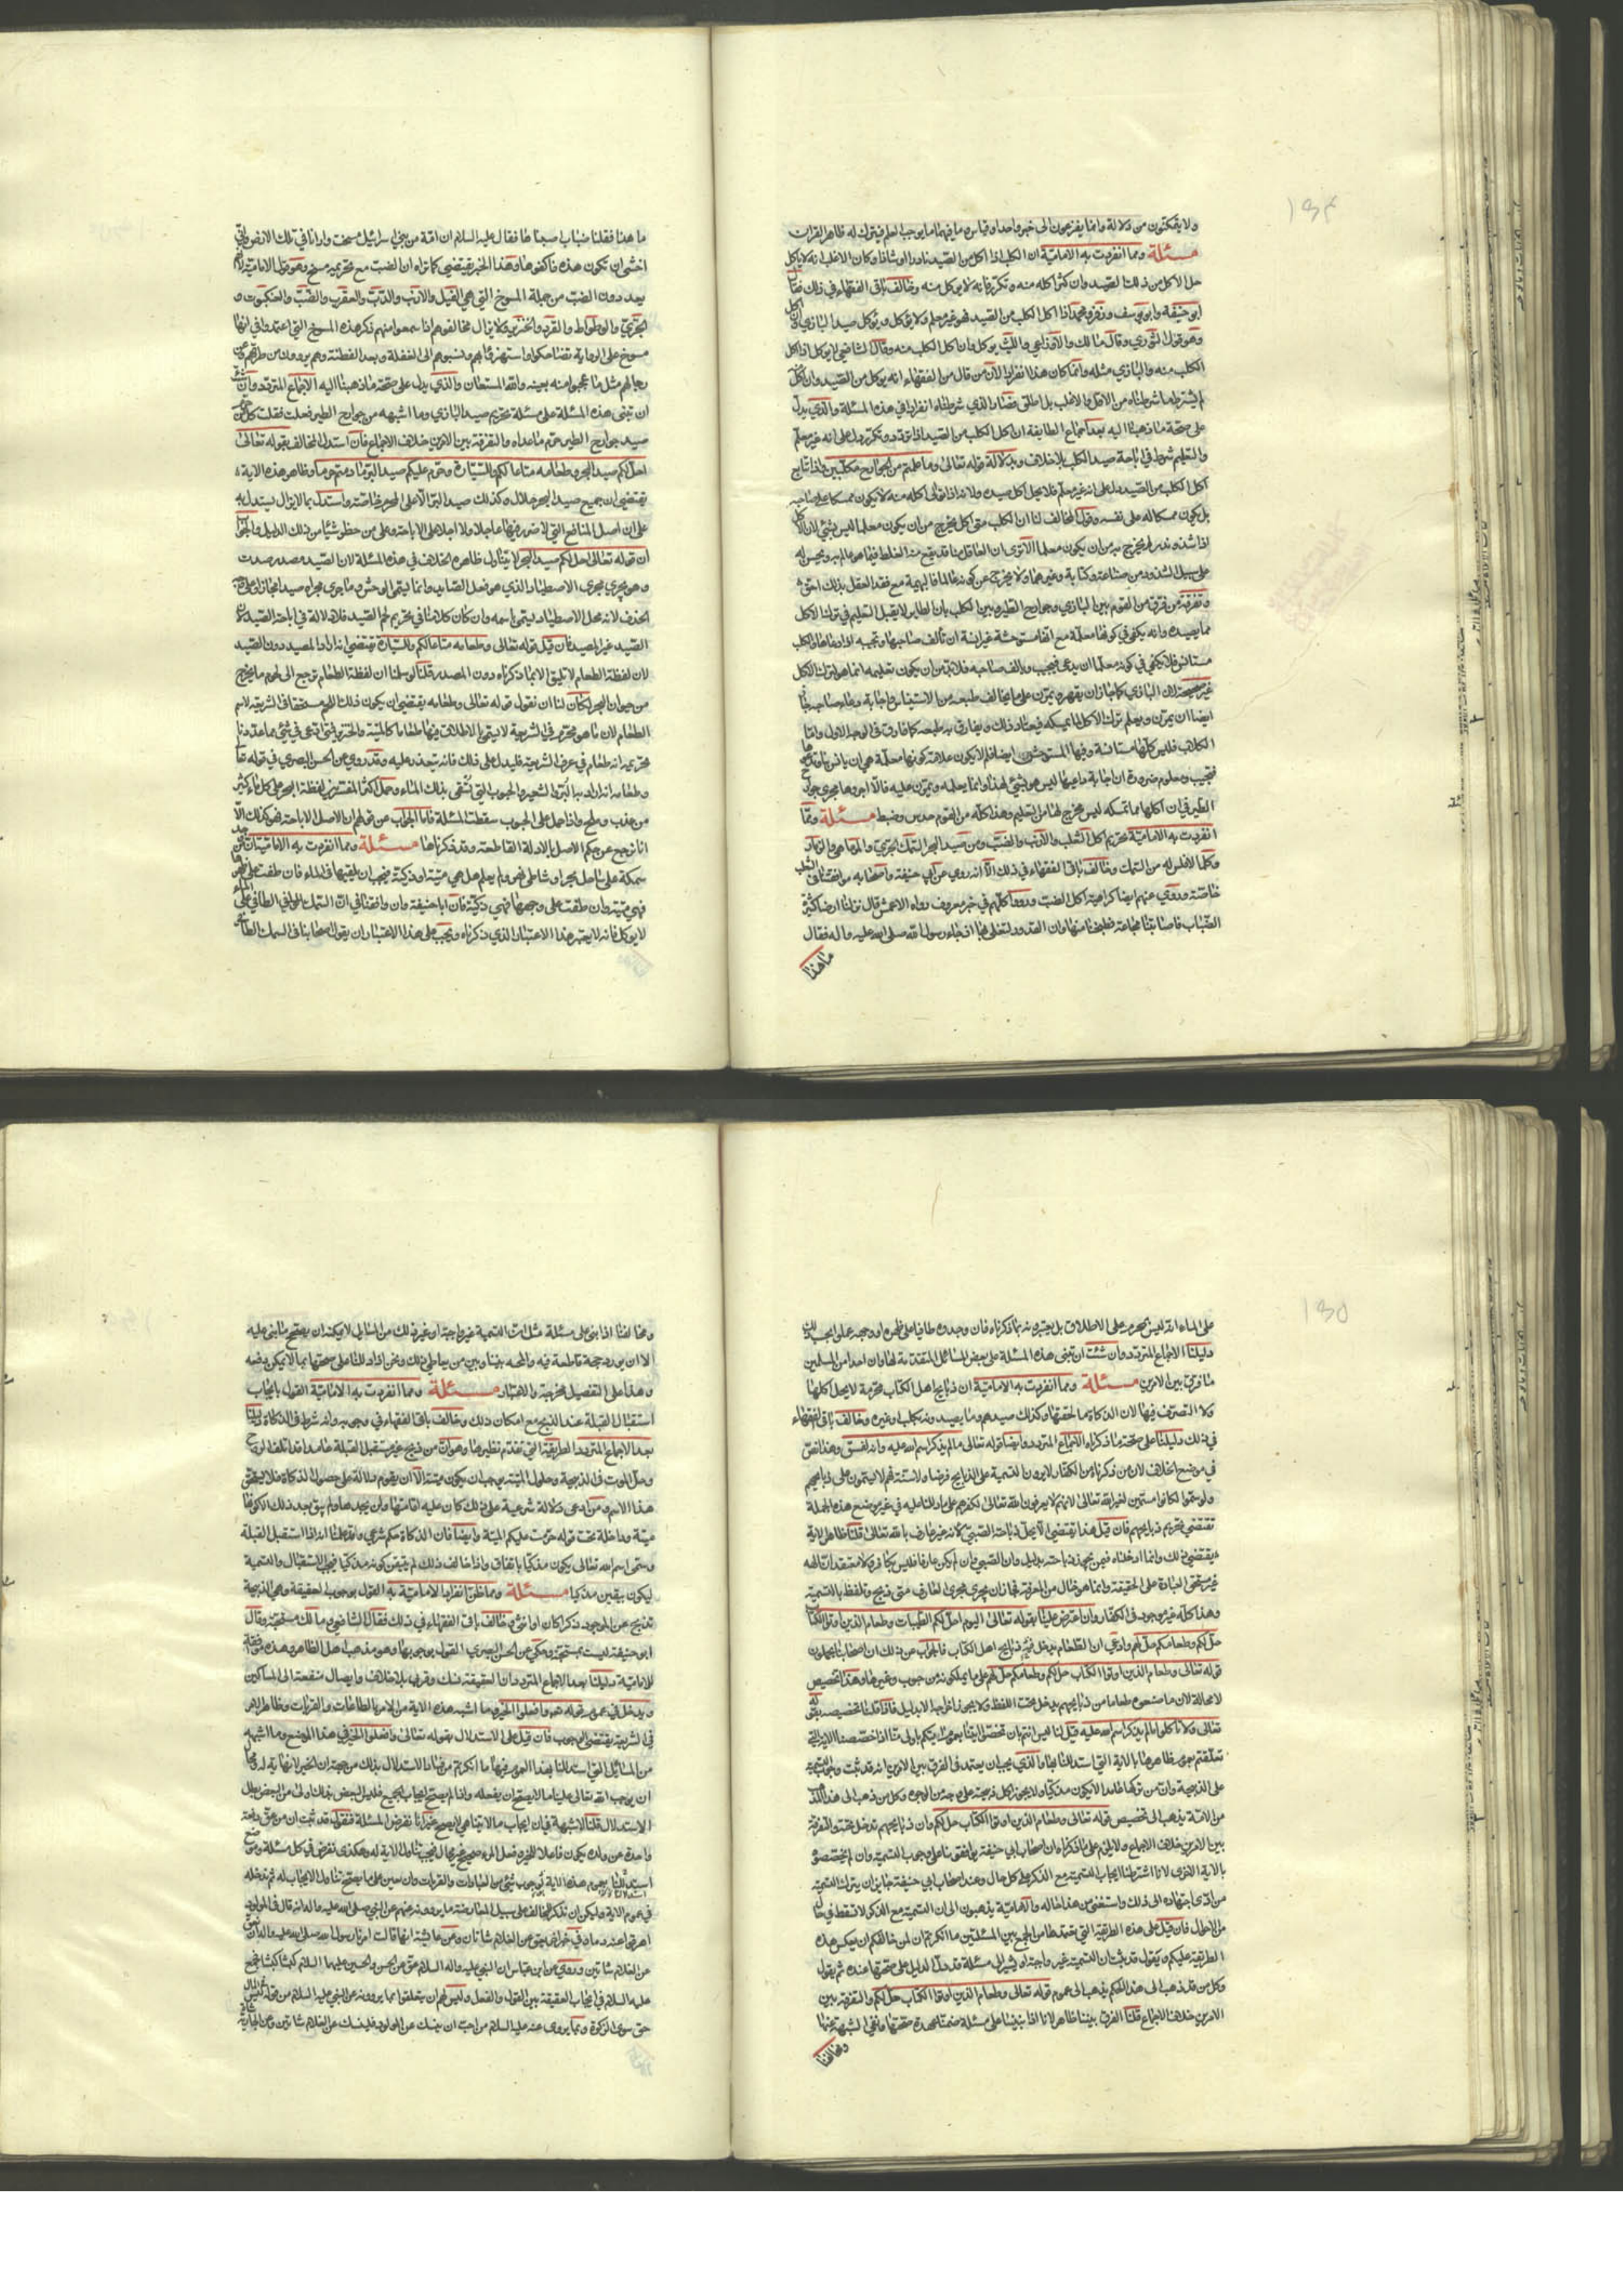 ولا يتمكنون من دلالة وانما يفزعون الى خبر واحد او قياس وما فيهما ما يوجب العلم فيترك له ظاهر القران
مسئلة ومما انفردت به الامامية ان الكلب اذا اكل من الصيد نادرا او شاذا وكان الاغلب انه لا ياكل
حل الاكل من ذلك الصيد وان كثر اكله منه وتكرر فانه لا يوكل منه وخالف باقى الفقهاء في ذلك فقال
ابو حنيفة وابو يوسف وزفر ومحمد اذا اكل الكلب من الصيد فهو غير معلم ولا يوكل ويوكل صيد البازي وان اكل
وهو قول الثوري وقال مالك والاوزاعي والليث يوكل وان اكل الكلب منه وقال الشافعي لا يوكل اذا اكل
الكلب منه والبازي مثله وانما كان هذا انفرادا لان من قال من الفقهاء انه يوكل من الصيد وان اكل
لم يشترط ما شرطناه من الاقل والاغلب بل اطلق فصار الذي شرطناه انفرادا في هذه المسئلة والذي يدل
على صحة ما ذهبنا اليه بعد اجماع الطايفة ان اكل الكلب من الصيد اذا تردد وتكرر دل على انه غير معلم
والتعليم شرط في اباحة صيد الكلب بلا خلاف وبدلالة قوله تعالى وما علمتم من الجوارح مكلبين واذا تتابع
اكل الكلب من الصيد دل على انه غير معلم فلا يحل اكل صيده ولانه اذا توالى اكله منه لا يكون ممسكا على صاحبه
بل يكون ممسكا له على نفسه وقول المخالف لنا ان الكلب متى اكل يخرج من ان يكون معلما ليس بشئ لان الاكل
اذا شذ وندر لم يخرج به من ان يكون معلما الا ترى ان العاقل منا قد يقع منه الغلط فيما هو عالم به ويحسن له
على سبيل الشذوذ من صناعة وكتابة وغيرهما ولا يخرج عن كونه عالما فالبهيمة مع فقد العقل بذلك احق
وتفرقة من فرق من القوم بين البازي وجوارح الطير وبين الكلب بان الطاير لا يقبل التعليم في ترك الاكل
مما يصيده وانه يكفي في كونها معلمة مع انها مستوحشة غير انسة ان تالف صاحبها وتجيبه اذا دعاها والكلب
مستانس فلا يكفي في كونه معلما ان يدعى فيجيب ويالف صاحبه فلا بد من ان يكون تعليمه انما هو بترك الاكل
غير صحيحة لان البازي كما جاز ان يقهر ويمرن على ما يخالف طبعه من الاستيناس واجابة دعاء صاحبه جاز
ايضا ان يمرن ويعلم ترك الاكل مما يمسكه فيعتاد ذلك ويفارق به طبعه كما فارق في الوجه الاول واما
الكلاب فليس كلها مستانسة وفيها المستوحش ايضا فلا يكون علامة كونها معلمة هي ان يانس بنا
فتجيب ومعلوم ضرورة ان اجابة داعيها ليس هو بشئ لهذا وانما يعلمه وتمرن عليه فالا اجروها مجرى جوارح
الطير في ان اكلها مما تمسكه ليس مخرج لها من التعليم وهذا كله من القوم حدس وخبط مسئلة ومما
انفردت به الامامية تحريم اكل الثعلب والارنب والضب ومن صيد البحر السمك الجري والمارماهي والزمار
وكلما لا فلس له من السمك وخالف باقى الفقهاء في ذلك الا انه روي عن ابي حنيفة واصحابه موافقتنا في الثعلب
خاصة وروي عنهم ايضا كراهية اكل الضب ورووا كلهم في خبر معروف رواه الاعمش قال نزلنا ارضا كثيرة
الضباب فاصابتنا مجاعة فطبخنا منها وان القدور لتغلي بها اذ جاء رسول الله صلى الله عليه واله فقال
ما هذا
ما هذا فقلنا ضباب اصبناها فقال عليه السلام ان امة من بني اسرائيل مسخت دوابا في تلك الارض واني
اخشى ان تكون هذه فاكفوها وهذا الخبر يقتضي كما تراه ان الضب مع تحريمه مسخ وهو قول الامامية لانهم
يعددون الضب من جملة المسوخ التي هي الفيل والارنب والدب والعقرب والضب والعنكبوت و
الجري والوطواط والقرد والخنزير ولا يزال مخالفوهم اذا سمعوا منهم ذكر هذه المسوخ التي اعتمدوا في انها
مسوخ على الرواية تضاحكوا واستهزءوا بهم ونسبوهم الى الغفلة وبعد الفطنة وهم يروون من طرقهم وعن
رجالهم مثل ما عجبوا منه بعينه والله المستعان والذي يدل على صحة ما ذهبنا اليه الاجماع المتردد وان شئت
ان تبني هذه المسئلة على مسئلة تحريم صيد البازي وما اشبهه من جوارح الطير فعلت فقلت كل من حرم
صيد جوارح الطير حرم ما عداه والتفرقة بين الامرين خلاف الاجماع فان استدل المخالف بقوله تعالى
احل لكم صيد البحر وطعامه متاعا لكم وللسيارة وحرم عليكم صيد البر ما دمتم حرما وظاهر هذه الاية
يقتضي ان جميع صيد البحر حلال وكذلك صيد البر الا على المحرم خاصة واستدل بما لا يزال يستدل به
على ان اصل المنافع التي لا ضرر فيها عاجلا ولا اجلا على الاباحة وعلى من حظر شيئا من ذلك الدليل والجواب
ان قوله تعالى احل لكم صيد البحر لا يتناول ظاهره الخلاف في هذه المسئلة لان الصيد مصدر صدت
وهو يجري مجرى الاصطياد الذي هو فعل الصايد وانما يسمى الوحش وما جرى مجراه صيدا مجازا وعلى وجه
الحذف لانه محل الاصطياد سمي باسمه وان كان كلامنا في تحريم لحم الصيد فلا دلالة في اباحة الصيد لان
الصيد غير المصيد فان قيل قوله تعالى وطعامه متاعا لكم وللسيارة يقتضي انه اراد المصيد دون الصيد
لان لفظة الطعام لا تليق الا بما ذكرناه دون المصدر قلنا لو سلمنا ان لفظة الطعام ترجع الى لحوم ما يخرج
من حيوان البحر لكان لنا ان نقول قوله تعالى وطعامه يقتضي ان يكون ذلك اللحم مستحقا في الشريعة لاسم
الطعام لان ما هو محرم في الشريعة لا يسمى بالاطلاق فيها طعاما كالميتة والخنزير فمن ادعى في شئ مما عددنا
تحريمه انه طعام في عرف الشريعة فليدل على ذلك فانه يتعذر عليه وقد روي عن الحسن البصري في قوله تعا
وطعامه انه اراد به البر والشعير والحبوب التي تسقى بذلك الماء وحمل اكثر المفسرين لفظة البحر على كل ماء كثير
من عذب وملح واذا حمل على الحبوب سقطت المسئلة فاما الجواب عن قولهم ان الاصل الاباحة فهو كذلك الا
انا نرجع عن حكم الاصل بالادلة القاطعة وقد ذكرناها مسئلة ومما انفردت به الامامية ان من وجد
سمكة على ساحل بحر او شاطى نهر ولم يعلم هل هي ميتة او ذكية فيجب ان يلقيها في الماء فان طفت على ظهرها
فهي ميتة وان طفت على وجهها فهي ذكية فان ابا حنيفة وان وافقنا في ان السمك الطافي على الماء
لا يوكل فانه لا يعتبر هذا الاعتبار الذي ذكرناه ويجب على هذا الاعتبار ان يقول اصحابنا في السمك الطافي
على الماء انه ليس بمحرم على الاطلاق بل يعتبرونه بما ذكرناه فان وجدوه طافيا على ظهره او وجهه عملوا بحسب ذلك
دليلنا الاجماع المتردد وان شئت ان تبني هذه المسئلة على بعض المسائل المتقدمة لها وان احدا من المسلمين
ما فرق بين الامرين مسئلة ومما انفردت به الامامية ان ذبايح اهل الكتاب محرمة لا يحل اكلها
ولا التصرف فيها لان الذكاة ما لحقتها وكذلك صيدهم وما يصيدونه بكلب او غيره وخالف باقى الفقهاء
في ذلك دليلنا على صحة ما ذكرناه الاجماع المتردد وايضا قوله تعالى ولا تاكلوا مما لم يذكر اسم الله عليه وانه لفسق وهذا نص
في موضع الخلاف لان من ذكرناه من الكفار لا يرون التسمية على الذبايح فرضا ولا سنة فهم لا يسمون على ذبايحهم
ولو سموا لكانوا مسمين لغير الله تعالى لانهم لا يعرفون الله تعالى لكفرهم على ما دللنا عليه في غير موضع هذه الجملة
تقتضي تحريم ذبايحهم فان قيل هذا يقتضي ان لا يحل ذباحة الصبي لانه غير عارف بالله تعالى قلنا ظاهر الاية
يقتضي ذلك وانما ادخلناه فيمن يجوز ذباحته بدليل وان الصبي وان لم يكن عارفا فليس بكافر ولا معتقد ان الهه
غير مستحق العبادة على الحقيقة وانما هو خال من المعرفة فجاز ان يجرى مجرى العارف متى ذبح وتلفظ بالتسمية
وهذا كله غير موجود في الكفار وان اعترض علينا بقوله تعالى اليوم احل لكم الطيبات وطعام الذين اوتوا الكتاب
حل لكم وطعامكم حل لهم وادعي ان الطعام يدخل فيه ذبايح اهل الكتاب فالجواب عن ذلك ان اصحابنا يحملون
قوله تعالى وطعام الذين اوتوا الكتاب حل لكم وطعامكم حل لهم على ما يملكونه من حبوب وغيرها وهذا تخصيص
لا محالة لان ما صنعوه طعاما من ذبايحهم يدخل تحت اللفظ ولا يجوز اخراجه الا بدليل فاذا قلنا تخصيصه بقوله
تعالى ولا تاكلوا مما لم يذكر اسم الله عليه قيل لنا ليس انتم بان تخصوا ايتنا بعموم ايتكم باولى منا اذا خصصنا الاية التي
تعلقتم بعموم ظاهرها بالاية التي استدللنا بها والذي يجب ان يعتمد في الفرق بين الامرين انه قد ثبت وجوب التسمية
على الذبيحة وان من تركها عامدا لا يكون مذكيا ولا يجوز اكل ذبيحته على وجه من الوجوه وكل من ذهب الى هذا المذهب
من الامة يذهب الى تخصيص قوله تعالى وطعام الذين اوتوا الكتاب حل لكم وان ذبايحهم لا تدخل تحته والتفرقة
بين الامرين خلاف الاجماع ولا يلزم على ما ذكرناه ان اصحاب ابي حنيفة يوافقونا على وجوب التسمية وان لم يخصصوا
بالاية الاخرى لانا اشترطنا ايجاب التسمية مع الذكر على كل حال وعند اصحاب ابي حنيفة جايز ان يترك التسمية
من ادى اجتهاده الى ذلك واستفتى من هذا حاله والامامية يذهبون الى ان التسمية مع الذكر لا تسقط في حال
من الاحوال فان قيل على هذه الطريقة التي تعتمدها من الجمع بين المسئلتين ما انكرتم ان لمن خالفكم ان يعكس هذه
الطريقة عليكم ويقول قد ثبت ان التسمية غير واجبة او يشير الى مسئلة قد دل الدليل على صحتها عنده ثم يقول
وكل من قد ذهب الى هذا الحكم يذهب الى عموم قوله تعالى وطعام الذين اوتوا الكتاب حل لكم والتفرقة بين
الامرين خلاف الاجماع قلنا الفرق بيننا ظاهر لانا اذا بنينا على مسئلة ضمنا عهدة صحتها ونفي الشبهة عنها
ومخالفنا
ومخالفنا اذا بنى على مسئلة مثل ان التسمية غير واجبة او غير ذلك من المسايل لا يمكنه ان يصحح ما بنى عليه
الا ان يورد حجة قاطعة فيه والمحنة بيننا وبين من يعاطى ذلك ونحن اذا دللنا على صحتها بما لا يمكن دفعه
وهذا على التفصيل يخرجه والاختبار مسئلة ومما انفردت به الامامية القول بايجاب
استقبال القبلة عند الذبح مع امكان ذلك وخالف باقى الفقهاء في وجوبه وانه شرط في الذكاة دليلنا
بعد الاجماع المتردد الطريقة التي تقدم نظيرها وهو ان من ذبح غير مستقبل القبلة عامدا قد اتلف الروح
وحل الموت في الذبيحة وحلول الموت يوجب ان يكون ميتة الا ان يقوم دلالة على حصول الذكاة فلا يستحق
هذا الاسم ومن ادعى دلالة شرعية على ذلك كان عليه اقامتها ولن يجدها ولم يبق بعد ذلك الا كونها
ميتة وداخلة تحت قوله حرمت عليكم الميتة وايضا فان الذكاة حكم شرعي وقد علمنا انه اذا استقبل القبلة
وسمى اسم الله تعالى يكون مذكيا باتفاق واذا خالف ذلك لم يتيقن كونه مذكيا فيجب الاستقبال والتسمية
ليكون بيقين مذكيا مسئلة ومما ظن انفراد الامامية به القول بوجوب العقيقة وهي الذبيحة
تذبح عن المولود ذكرا كان او انثى وخالف باقى الفقهاء في ذلك فقال الشافعي ومالك مستحبة وقال
ابو حنيفة ليست بمستحبة وحكي عن الحسن البصري القول بوجوبها وهو مذهب اهل الظاهر وهذه موافقة
للامامية دليلنا بعد الاجماع المتردد ان العقيقة نسك وقربى بلا خلاف وايصال منفعة الى المساكين
ويدخل في عموم قوله تعالى وافعلوا الخير وما اشبه هذه الاية من الامر بالطاعات والقربات وظاهر الامر
في الشريعة يقتضي الوجوب فان قيل على الاستدلال بقوله تعالى وافعلوا الخير في هذا الموضع وما اشبهه
من المسائل التي استدللنا بهذا العموم فيها ما انكرتم من فساد الاستدلال بذلك من جهة ان الخير لا نهاية له ومحال
ان يوجب الله تعالى علينا ما لا يصح ان نفعله واذا لم يصح ايجاب الجميع فليس البعض بذلك اولى من البعض وبطل
الاستدلال قلنا لا شبهة في ان ايجاب ما لا يتناهى لا يصح غير انا نفرض المسئلة فنقول قد ثبت ان من عق دفعة
واحدة عن ولده يكون فاعلا للخير وفعل المرة صحيح غير محال فيجب تناول الاية له وهكذا نفرض في كل مسئلة
استدللنا بعموم هذه الاية على وجوب شئ من العبادات والقربات وان نبين على ما يصح تناول الايجاب له ثم ندخله
في عموم الاية ويمكن ان نذكر المخالف على سبيل المعارضة ما يروونه عن النبي صلى الله عليه واله انه قال في المولود
اهرقوا عنه دما وفي خبر اخر يعق عن الغلام شاتان وعن عائشة انها قالت امرنا رسول الله صلى الله عليه واله ان نعق
عن الغلام شاتين وروي عن ابن عباس ان النبي عليه واله السلام عق عن الحسن والحسين عليهما السلام كبشا كبشا فجمع
عليه السلام في ايجاب العقيقة بين القول والفعل وليس لهم ان يتعلقوا بما يروونه عن النبي عليه السلام من قوله ليس في المال
حق سوى الزكوة وبما يروى عنه عليه السلام من احب ان ينسك عن المولود فلينسك عن الغلام شاتين وعن الجارية شاة